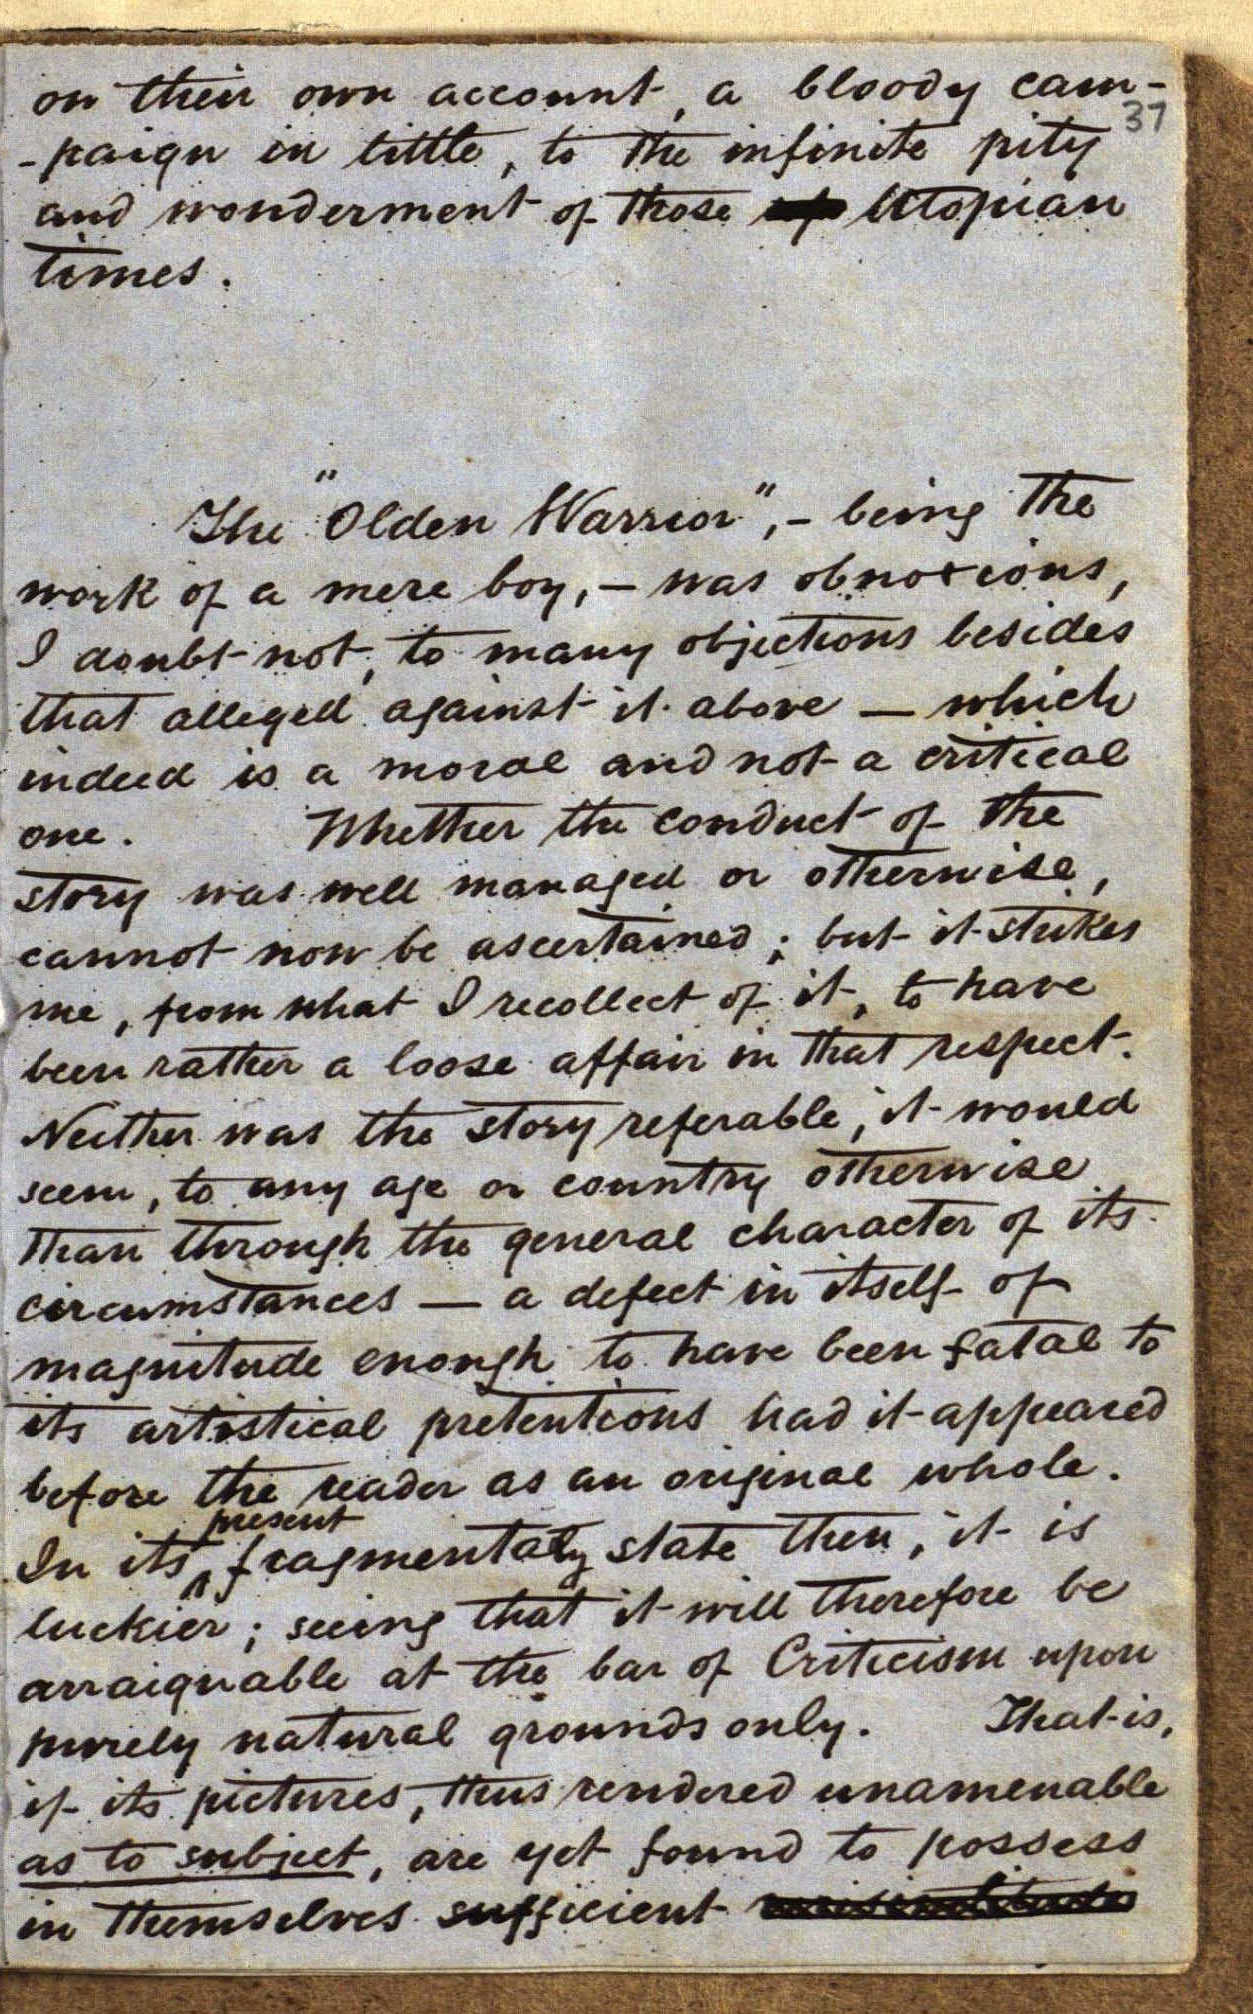 on their own account, a bloody cam-
37
-paign in little, to the infinite pity
and wonderment of those Utopian
times.
The "Olden Warrior", – being the
work of a mere boy, – was obnoxious,
I doubt not, to many objections besides
that alleged against it above — which
indeed is a moral and not a critical
one. Whether the conduct of the
story was well managed or otherwise,
cannot now be ascertained; but it strikes
me, from what I recollect of it, to have
been rather a loose affair in that respect.
Neither was the story referable, it would
seem, to any age or country otherwise
than through the general character of its
circumstances — a defect in itself of
magnitude enough to have been fatal to
its artistical pretentions had it appeared
before the reader as an original whole.
present
In its ^ fragmentaly state then, it is
luckier; seeing that it will therefore be
arraignable at the bar of Criticism upon
purely natural grounds only. That is,
if its pictures, thus rendered unamenable
as to subject, are yet found to possess
in themselves sufficient